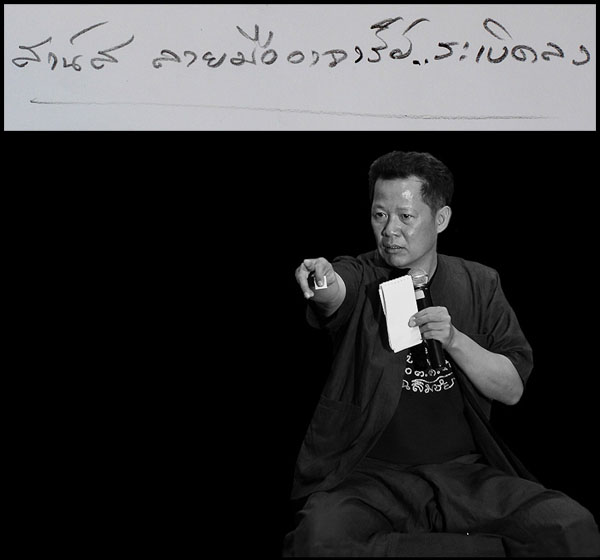 สาน์ส ลายมืออาจารย์..ระเบิดลง